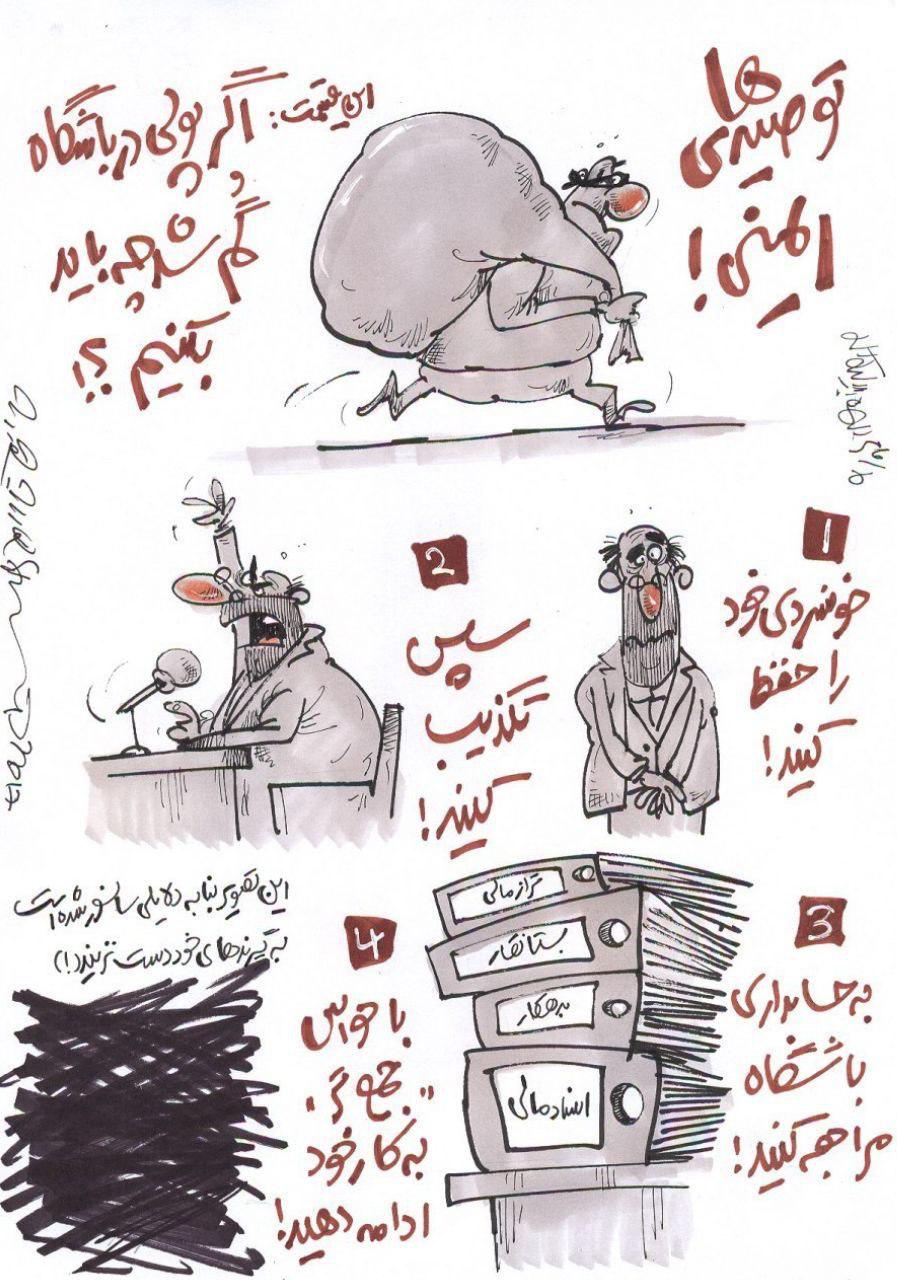 توصیه‌ی
ها
ایمنی!
این قسمت: اگر پولی در باشگاه
گم شد چه باید
بکنیم ؟!
1
خونسردی خود
را حفظ
کنید!
2
سپس
تکذیب
کنید!
3
به حسابداری
باشگاه
مراجعه کنید!
ترازمالی
بستانکار
بدهکار
اسنادمالی
4
با حواس
"جمع تر"
به کار خود
ادامه دهید!
این تصویر بنا به دلایلی سانسور شده است
به گیرنده‌های خود دست نزنید(!)